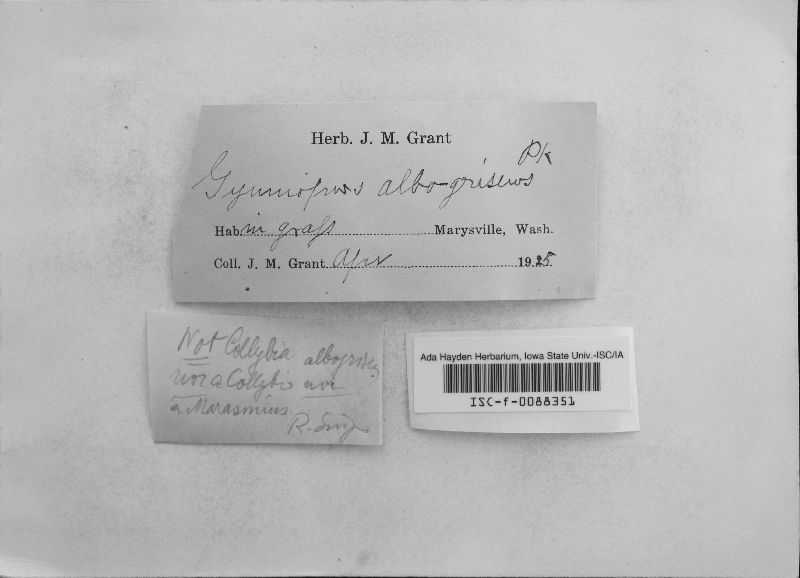 Herb. J. M. Grant
Gymnopus albo-griseus Pk
Hab. in grass Marysville, Wash.
Coll. J. M. Grant Apr 1925
Not Collybia albogrisea
nor a Collybia nor
a Marasmius
R. Singer
Ada Hayden Herbarium, Iowa State Univ.-ISC/IA
ISC-f-0088351